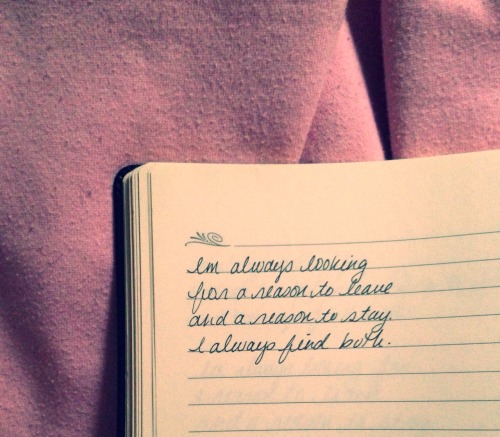 Im always looking
for a reason to leave
and a reason to stay.
I always find both.